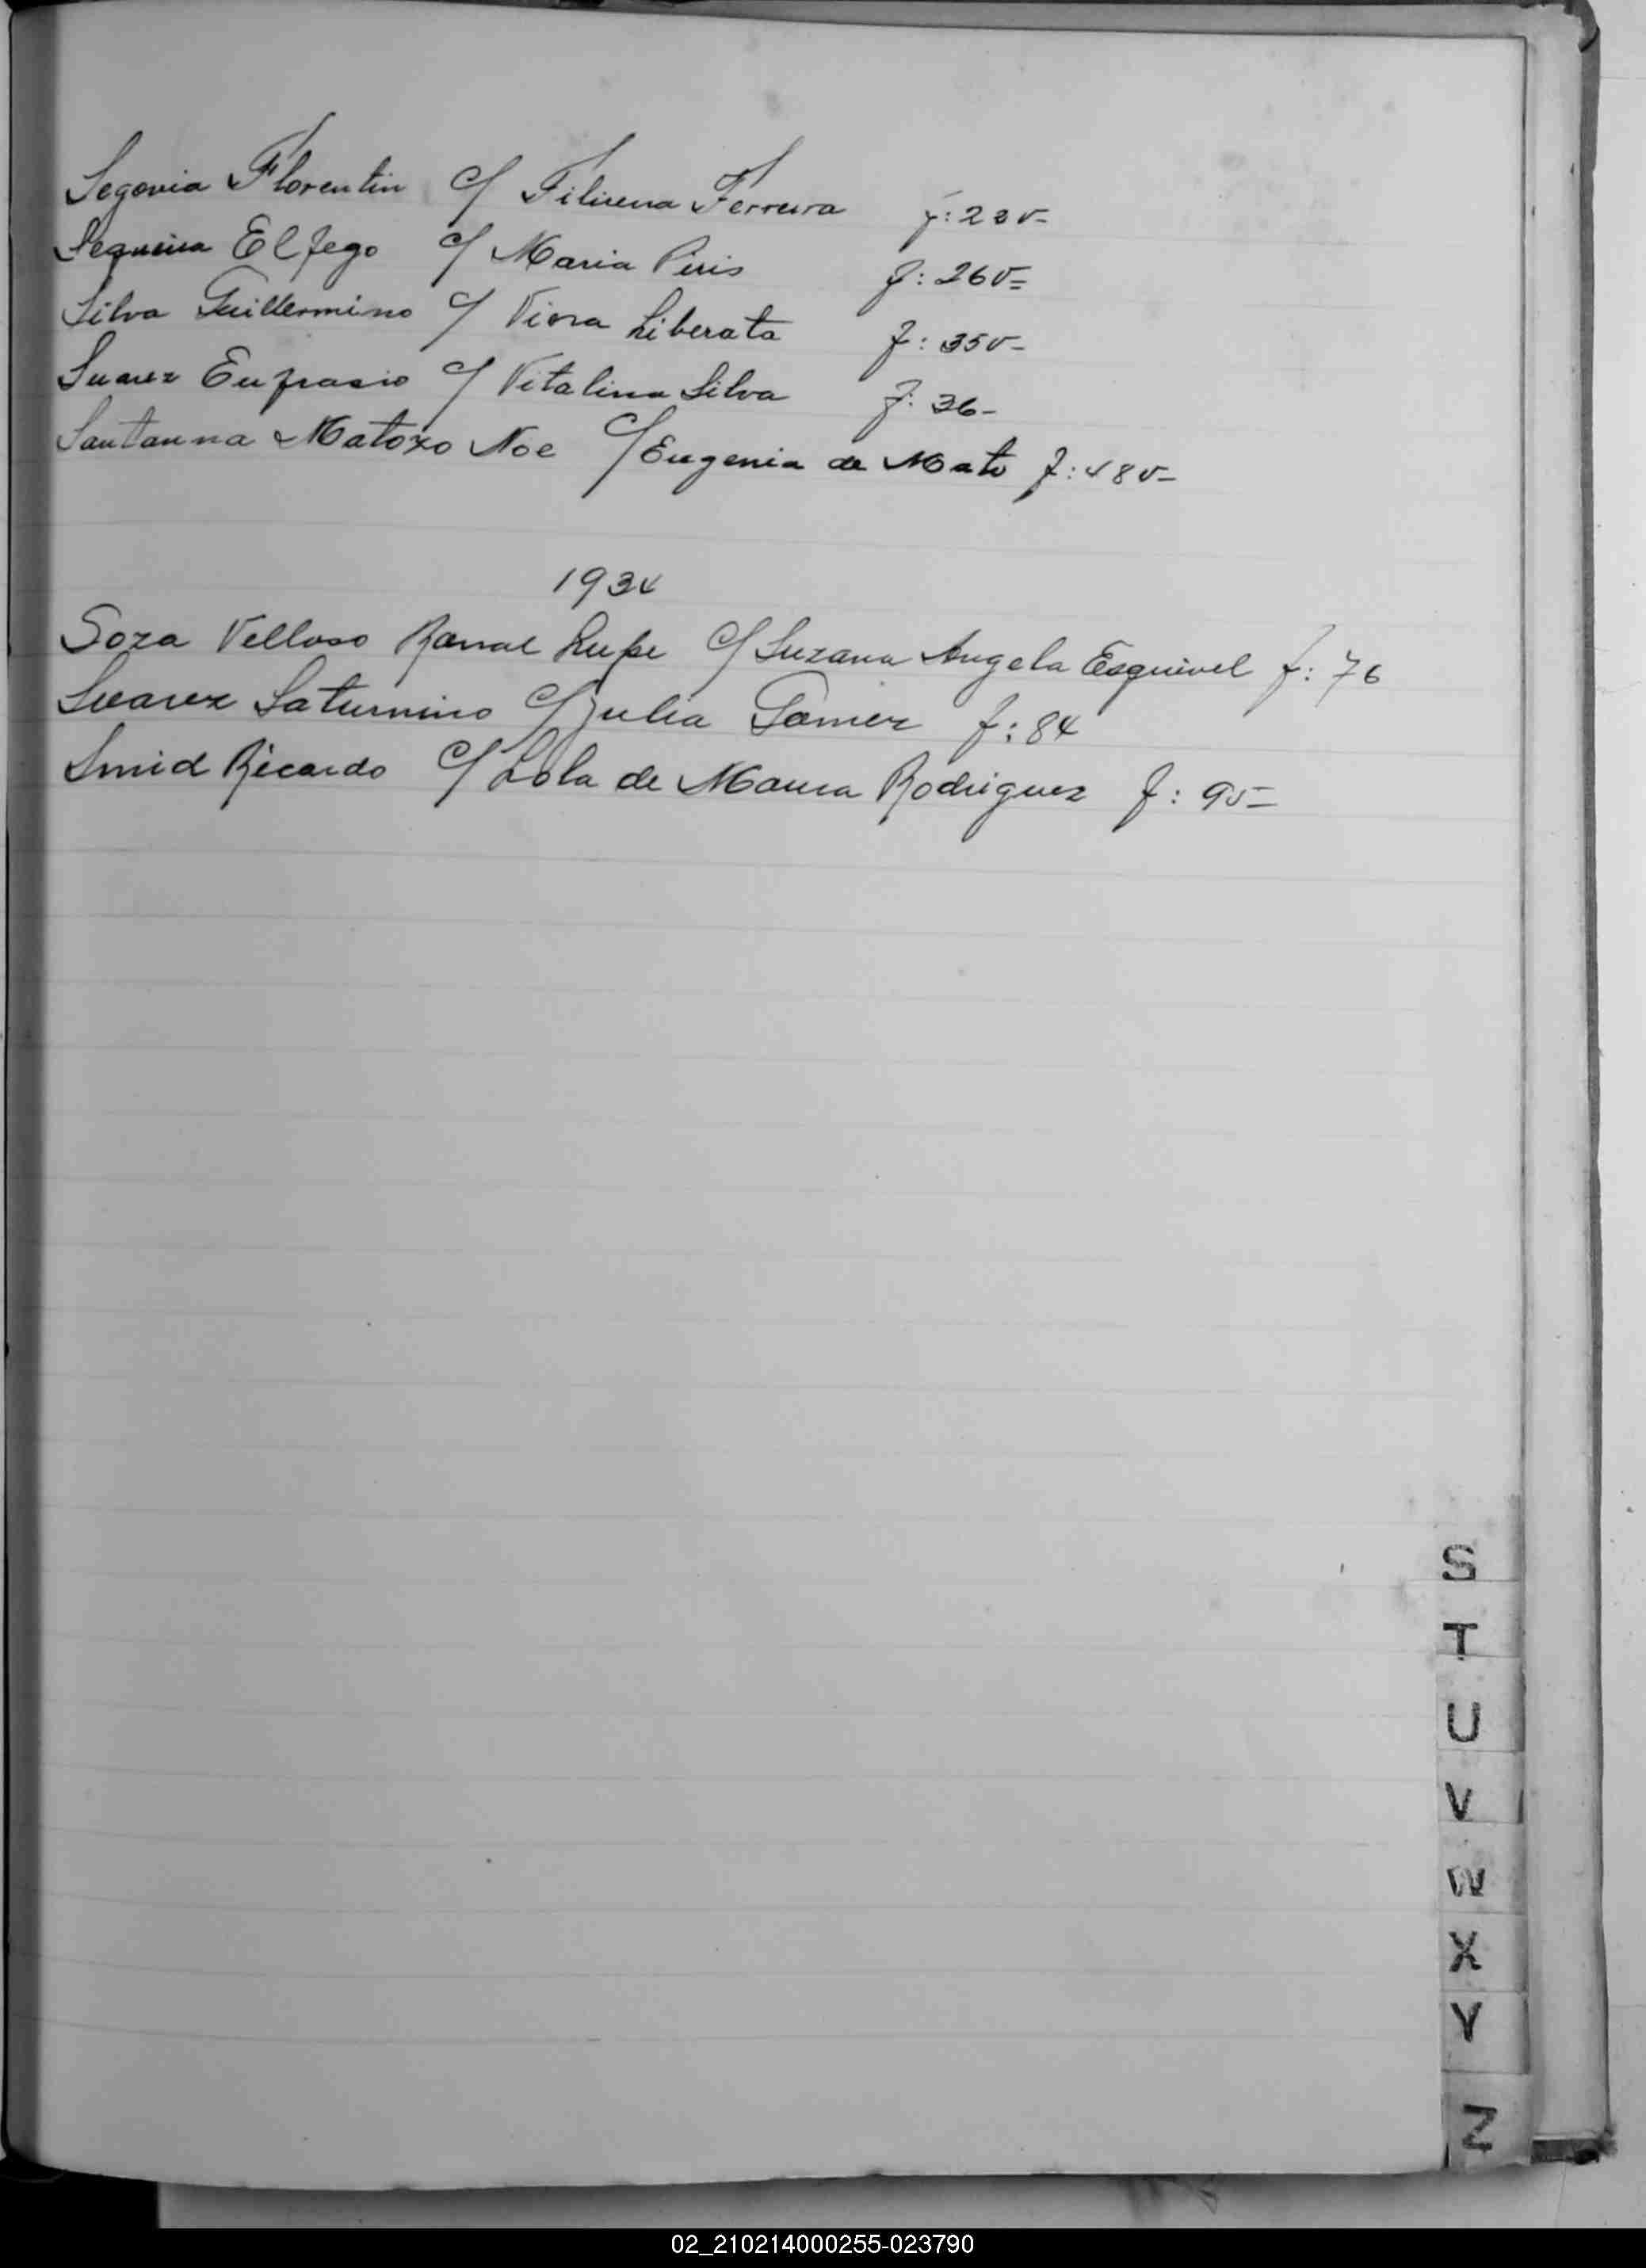 Segovia Florentin c/ Filirena Ferreira f: 235-
Sequeira Elfego c/ Maria Piris f: 265=
Silva Guillermino c/ Viera Liberata f: 355-
Suarez Eufrasio c/ Vitalina Silva f: 36-
Santanna Matozo Noe c/ Eugenia de Mato f: 485-
1934
Soza Velloso Lupe c/ Suzana Angela Esquivel f: 76
Suarez Saturnino c/ Julia Gomez f: 84
Smid Ricardo c/ Lola de Moura Rodriguez f: 95=
S
T
U
V
W
X
Y
Z
02_210214000255-023790